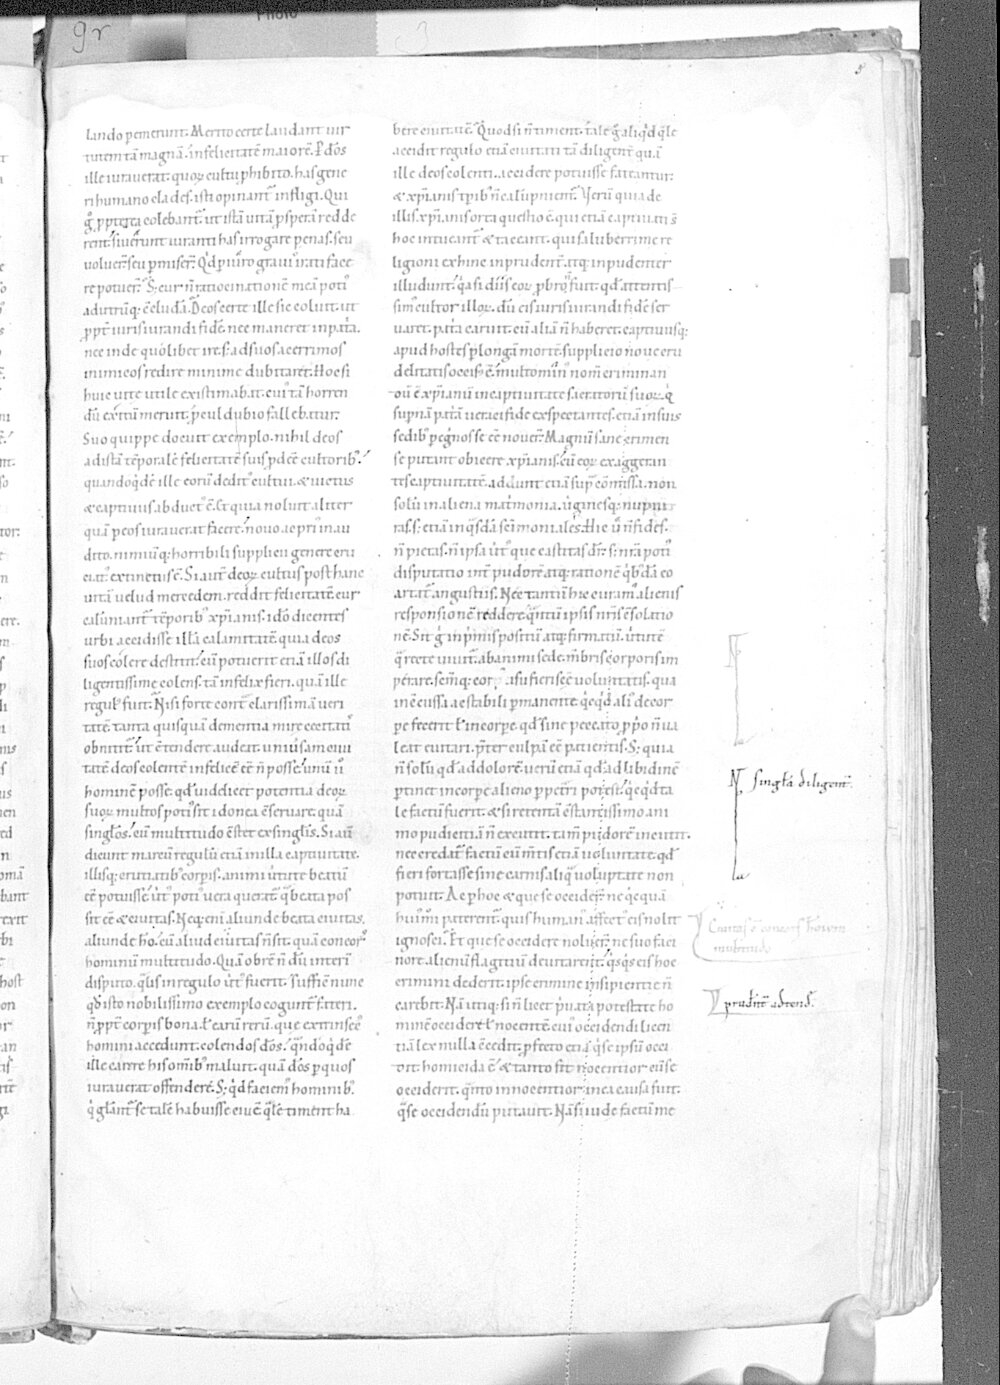 9r
Photo
3
lando pemerunt. Merito certe laudant uir
tutem tā magnā. infelicitatē maiorē. P dōs
ille iurauerat. quoꝝ cultꝰ phibito. has gene
ri humano clades. isti opinant̃ infligi. Qui
g̊ ppterea colebant̃. ut istā uitā psperā redde
rent. si uerunt iuranti has irrogare penas. seu
uoluer̃. seu pmiser̃. Qd piuro grauiꝰ irati face
re potuer̃. S; cur n̄ ratiocinationē meā potiꝰ
ad utrūq; c̄cludā. Deos certe ille sic coluit. ut
ppt̃ iurisiurandi fidē. nec maneret in pat̃a.
nec inde quolibet iret. s; ad suos acerrimos
inimicos redire minime dubitaret. Hoc si
huic uite utile existimabat. cuiꝰ tā horren
dū exitū meruit. pcul dubio fallebatur.
Suo quippe docuit exemplo. nihil deos
ad istā tēporalē felicitatē suis pdēe cultorib;.
quando qdē ille eorū deditꝰ cultui. & uictus
& captiuus abductꝰ ē. Et quia noluit aliter
quā p eos iurauerat facere. nouo ac priꝰ inau
dito. nimiūq; horribili supplicii genere cru
ciatꝰ extinctus ē. Si aut̃ deoꝝ cultus post hanc
uitā uelud mercedem. reddit felicitatē. cur
calūniant̃ tēporib; xp̄ianis. ido dicentes
urbi accidisse illā calamitatē. quia deos
suos colere destitit. cū potuerit etiā illos di
ligentissime colens. tā infelix fieri. quā ille
regulꝰ fuit. Nisi forte cont̃ clarissimā ueri
tatē. tanta quisquā dementia mire cecitatis
obnitit̃. ut c̄tendere audeat. uniuersam ciui
tatē deos colentē infelicē ēe n̄ posse. unū ů
hominē posse. qd uidelicet potentia deoꝝ
suoꝝ multos potiꝰ sit idonea c̄seruare. quā
singl̃os. cū multitudo c̄stet ex singl̃is. Si aut̃
dicunt marcū regulū etiā in illa captiuitate.
illisq; cruciatib; corpis. animi uirtute beatū
ēe potuisse. uirtꝰ potiꝰ uera querat̃. q beata pos
sit ēe & ciuitas. Neq; eni aliunde beata ciuitas.
aliunde hō. cū aliud ciuitas n̄ sit. quā concorꝰ
hominū multitudo. Quā obrē n̄ dū interi
disputo. qlis in regulo uirtꝰ fuerit. sufficit nunc
qd isto nobilissimo exemplo cogunt̃ fateri.
n̄ ppt̃ corpis bona. ł earū rerū. que extrinsecꝰ
homini accedunt. colendos dōs. qndo qdē
ille carere his omib; maluit. quā dōs p quos
iurauerat offendere. S; qd faciemꝰ hominib;.
q glant̃ se talē habuisse ciuē. qlē timent ha
bere ciuitatē. Quod si n̄ timent. tale g̊ aliqd qle
accidit regulo etiā ciuitati tā diligent̃ quā
ille deos colenti. accidere potuisse fateantur.
& xp̄ianis tpib; n̄ calūpnient̃. Uerū quia de
illis xp̄ianis orta questio ē. qui etiā captiuati s̄
hoc intueant̃ & taceant. qui saluberrime re
ligioni ex hinc inprudent̃. atq; inpudenter
illudunt. qa si diis eoꝝ pbro n̄ fuit. qd attentis
simꝰ cultor illoꝝ. dū eis iurisiurandi fidē ser
uaret. pat̃a caruit. cū aliā n̄ haberet. captiuusq;
apud hostes p longā mortē. supplicio noue cru
delitatis occisꝰ ē. multominꝰ nom̃ criminan
dū ē xp̄ianū in captiuitate sacratorū suoꝝ. q
supnā pat̃a ueraci fide exspectantes. etiā in suis
sedib; pegnos se ēe nouer̃. Magnū sane crimen
se putant obicere xp̄ianis. cū eoꝝ exaggeran
tes captiuitatē. addunt etiā stup̃ cōmissa. non
solū in aliena matrimonia. uirginesq; nupturas.
s; etiā in qsdā scimoniales. Hic ů n̄ fides.
n̄ pietas. n̄ ipsa uirtꝰ que castitas dr̃. s; nrā potiꝰ
disputatio int̃ pudorē atq; rationē qbdā co
artat̃ angustiis. Nec tantū hic curamꝰ alienis
responsionē reddere. qntū ipsis nr̄is c̄solatio
nē. Sit g̊ inpmis positū atq; firmatū. uirtutē
q recte uiuit̃. ab animi sede. m̄bris corporis im
perare. scm̄q; corpus usu fieri scē uoluntatis. qua
inc̄cussa ac stabili permanente. qcqd aliꝰ de cor
pe fecerit ł in corpe. qd sine peccato pprio n̄ ua
leat euitari. p̃ter culpā ēe patientis. S; quia
n̄ solū qd ad dolorē. uerū etiā qd ad libidinē
ptinet in corpe alieno ppetri potest. qcqd ta
le factū fuerit. & si retentā c̄stantissimo ani
mo pudicitiā n̄ excutit. tam̄ pudorē incutit.
ne credat̃ factū cū m̄tis etiā uoluntate. qd
fieri fortasse sine carnis aliq̃ uoluptate non
potuit. Ac p hoc & que se occider̃ ne qcquā
huiꝰmodi paterent̃. quis humanꝰ affectꝰ eis nolit
ignosci. Et que se occidere noluer̃. ne suo faci
nore alienū flagitiū deuitarent. qsqs eis hoc
crimini dederit. ipse crimine insipientie n̄
carebit. Nā utiq; si n̄ licet puata potestate ho
minē occidere ł nocentē. cuiꝰ occidendi licen
tiā lex nulla c̄cedit. pfecto etiā qi se ipsū occi
dit. homicida ē. & tanto fit nocentior cū se
occiderit. qnto innocentior in ea causa fuit.
q se occidendū putauit. Nā si iude factū me
N̄
N̄ singl̃a diligent̃.
Ciuitas ē concors hoīum
multitudo
prudent̃ adtend̃.